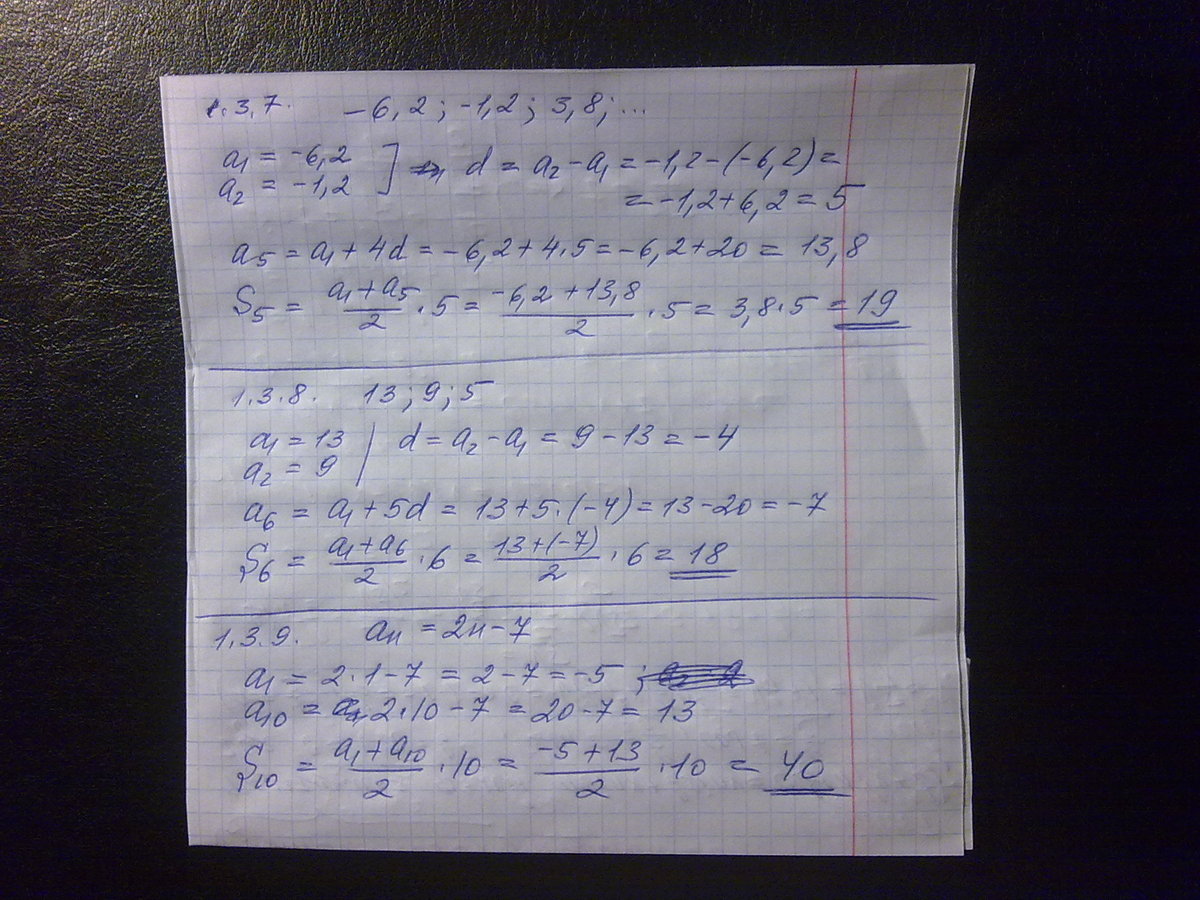 1.3.7. -6,2; -1,2; 3,8; ...
a₁ = -6,2 ] d = a₂ - a₁ = -1,2 - (-6,2) =
a₂ = -1,2 = -1,2 + 6,2 = 5
a₅ = a₁ + 4d = -6,2 + 4·5 = -6,2 + 20 = 13,8
S₅ = (a₁ + a₅)/2 · 5 = (-6,2 + 13,8)/2 · 5 = 3,8·5 = 19
1.3.8. 13; 9; 5
a₁ = 13 | d = a₂ - a₁ = 9 - 13 = -4
a₂ = 9
a₆ = a₁ + 5d = 13 + 5·(-4) = 13 - 20 = -7
S₆ = (a₁ + a₆)/2 · 6 = (13 + (-7))/2 · 6 = 18
1.3.9. aₙ = 2n - 7
a₁ = 2·1 - 7 = 2 - 7 = -5 ;
a₁₀ = 2·10 - 7 = 20 - 7 = 13
S₁₀ = (a₁ + a₁₀)/2 · 10 = (-5 + 13)/2 · 10 = 40